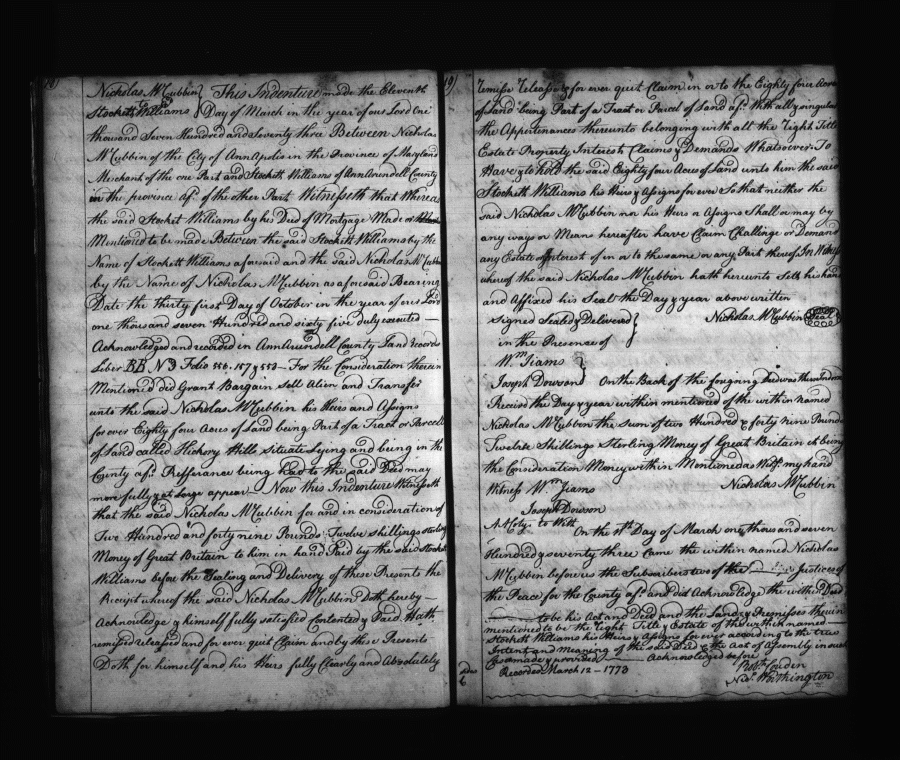 Nicholas McCubbin } This Indenture made the Eleventh
Stockett Williams } Day of March in the year of our Lord One
thousand Seven Hundred and Seventy three Between Nicholas
McCubbin of the City of AnnApolis in the Province of Maryland
Merchant of the one Part and Stockett Williams of AnnArundell County
in the province afs. of the other Part Witnesseth that Whereas
the said Stockett Williams by his Deed of Mortgage Made as
Mentioned to be made Between the said Stockett Williams by the
Name of Stockett Williams aforesaid and the said Nicholas McCubbin
by the Name of Nicholas McCubbin as aforesaid Bearing
Date the thirty first Day of October in the year of our Lord
one thousand seven Hundred and sixty five duly executed
Acknowledged and recorded in AnnArundell County Land records
Liber BB No 3 Folio 556. 557 & 558 For the Consideration therein
Mentioned did Grant Bargain Sell Alien and Transfer
unto the said Nicholas McCubbin his Heirs and Assigns
for ever Eighty four Acres of Land being Part of a Tract or Parcell
of Land called Hickory Hills situate Lying and being in the
County afs. Refferance being had to the said Deed may
more fully & at Large appear Now this Indenture Witnesseth
that the said Nicholas McCubbin for and in consideration of
Two Hundred and forty nine Pounds Twelve shillings sterling
Money of Great Britain to him in hand Paid by the said Stockett
Williams before the Sealing and Delivery of these Presents the
Receipt whereof the said Nicholas McCubbin Doth hereby
Acknowledge & himself fully satisfied Contented & Paid Hath
remised released and for ever quit Claim and by these Presents
Doth for himself and his Heirs fully Clearly and Absolutely
19)
remise release & for ever quit Claim in or to the Eighty four Acres
of Land being Part of a Tract or Parcel of Land afs. With all & singular
the Appertenances thereunto belonging with all the right Title
Estate Property Interest Claims & Demands Whatsoever To
Have & to hold the said Eighty four Acres of Land unto him the said
Stockett Williams his Heirs & Assigns for ever So that neither the
said Nicholas McCubbin nor his Heirs or Assigns Shall or may by
any ways or Means hereafter have Claim Challinge or Demand
any Estate or Interest of in or to the same or any Part thereof In Witness
whereof the said Nicholas McCubbin hath hereunto Sett his hand
and Affixed his Seal the Day & year above written
Signed Sealed & Delivered } Nicholas McCubbin Seal
in the Presence of
Wm. Jiams
Joseph Dowson } On the Back of the foregoing Deed was thus Indorsed
Received the Day & year within mentioned of the within named
Nicholas McCubbin the Sum of two Hundred & forty nine Pounds
Twelve Shillings Sterling Money of Great Britain it being
the Consideration Money within Mentioned as Witss. my hand
Witness Wm. Jiams Nicholas McCubbin
Joseph Dowson
A A Coty. to Witt
On the 11th Day of March one thousand seven
Hundred & seventy three Came the within named Nicholas
McCubbin before us the Subscribers two of the Justices of
the Peace for the County afs. and did Acknowledge the within Deed
to be his Act and Deed and the Land & Premisses therein
mentioned to be the right Title & Estate of the within named
Stockett Williams his Heirs & Assigns for ever according to the true
Intent and meaning of the said Deed & the Act of Assembly in such
Case made & provided Acknowledged before
Recorded March 12 - 1773 Robt. Couden
Nic. Worthington